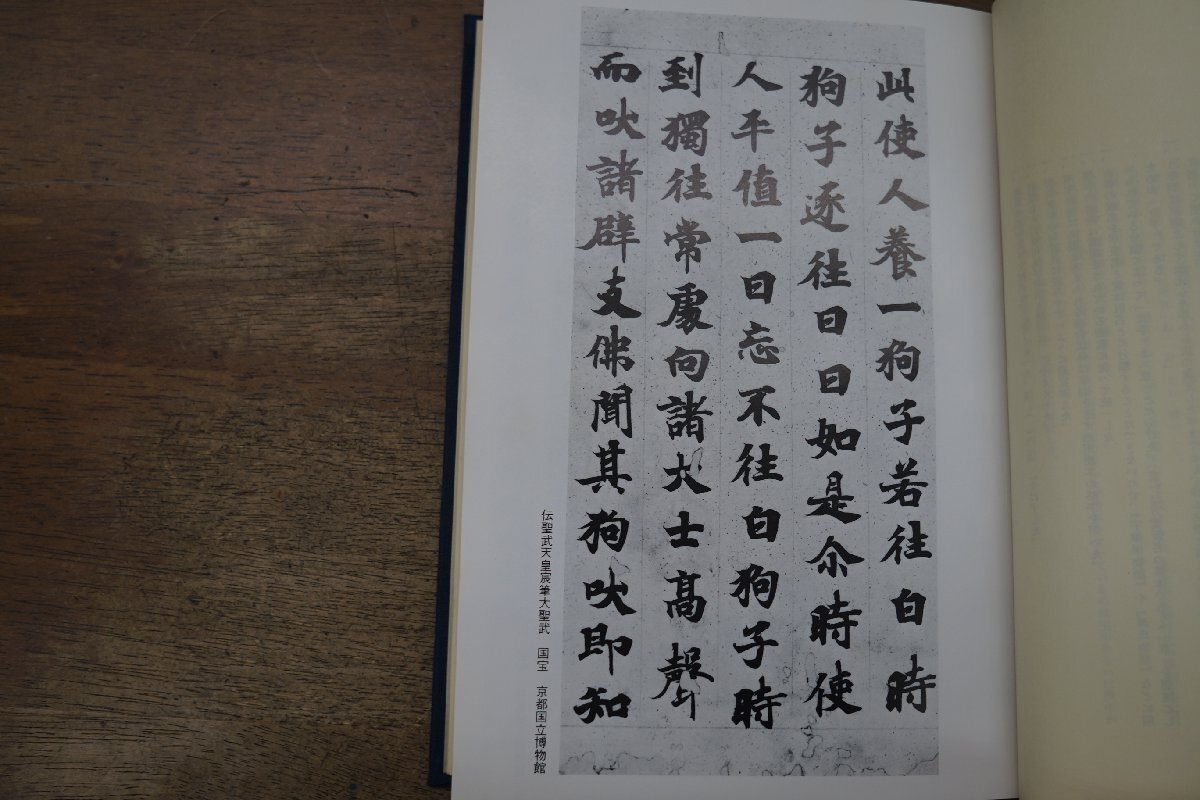 此使人養一狗子若往白時
狗子逐往日日如是尒時使
人平值一日忘不往白狗子時
到獨往常處向諸大士高聲
而吠諸辟支佛聞其狗吠即知
伝聖武天皇宸筆大聖武　国宝　京都国立博物館